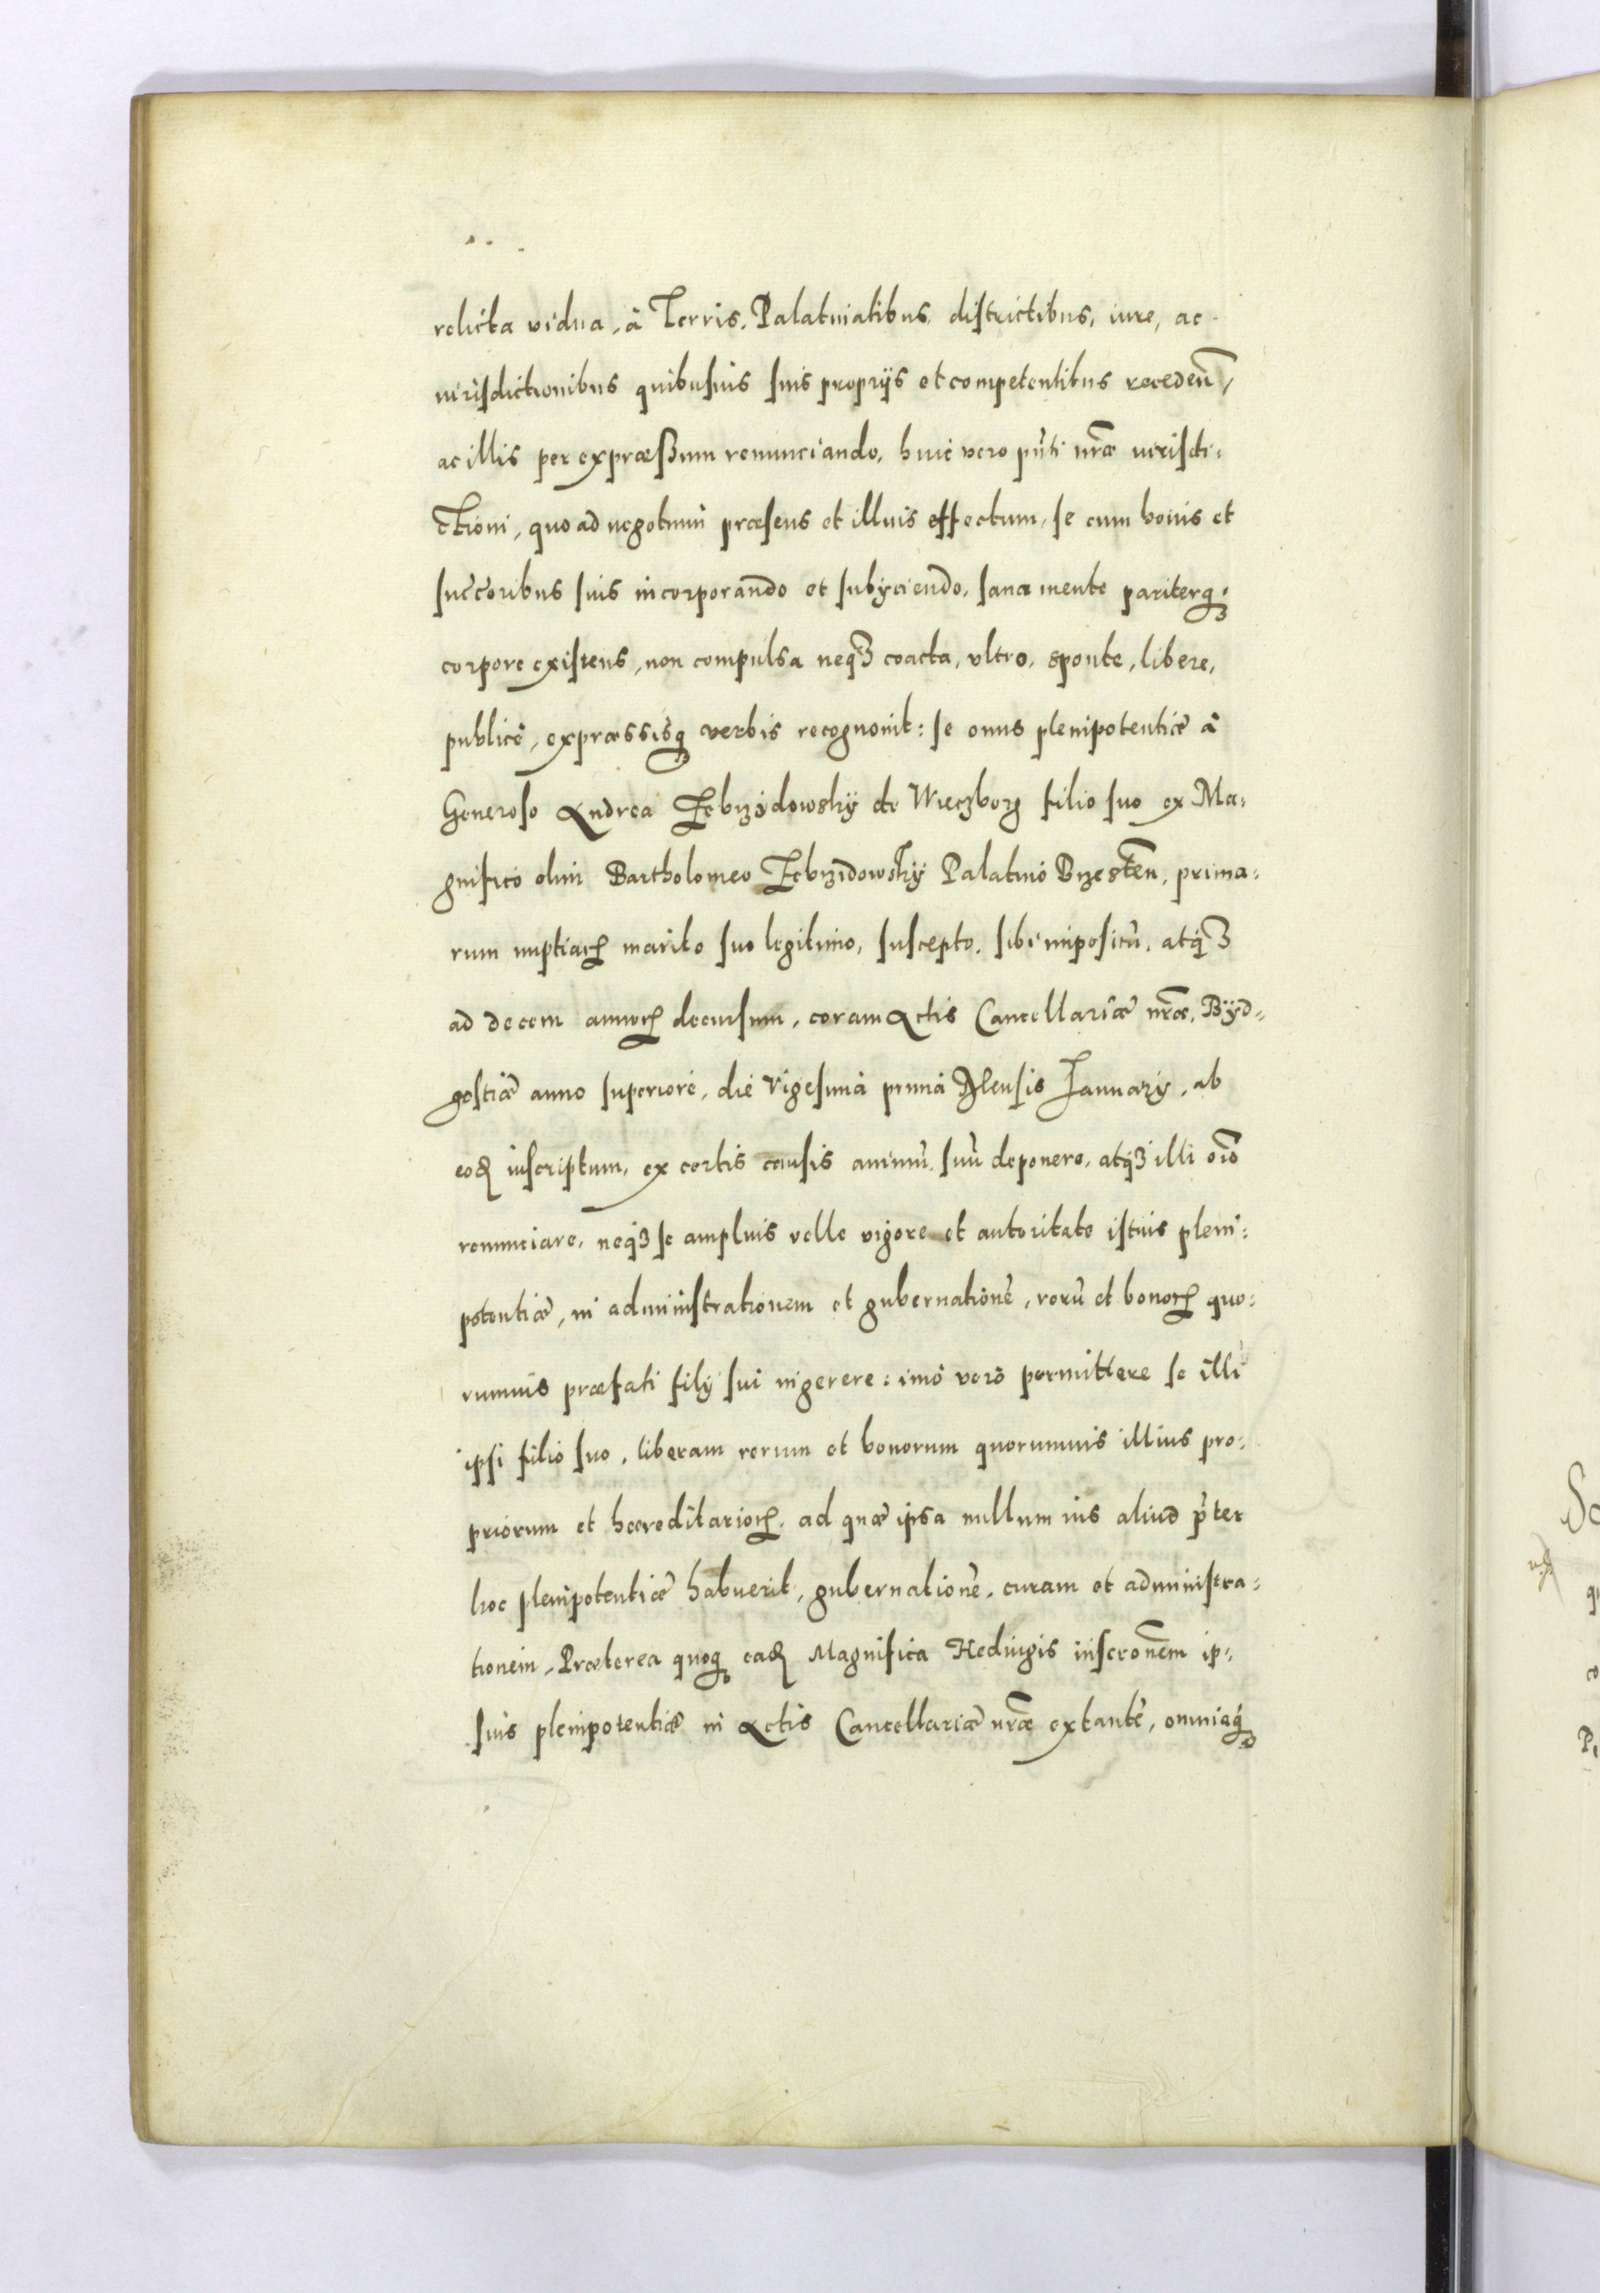 relicta vidua, à Terris, Palatinatibus, districtibus, iure, ac
iurisdictionibus quibusuis suis proprijs et competentibus recedeñ,
ac illis per expræssum renunciando, huic vero pñti nr̃æ iurisdi:
ctioni, quo ad negotium præsens et illius effectum, se cum bonis et
succ̃oribus suis incorporando et subijciendo, sana mente pariterq;
corpore existens, non compulsa neqз coacta, vltro, sponte, libere,
publicè, expræssisq; verbis recognouit: se onus plenipotentiæ à
Generoso Andrea Zebrzÿdowskÿ de Wieczborg filio suo ex Ma:
gnifico olim Bartholomeo Zebrzidowskÿ Palatino Brzesteñ, prima:
rum nuptiarꝝ marito suo legitimo, suscepto, sibi impositũ, atqз
ad decem annorꝝ decursum, coram Actis Cancellariæ nr̃æ, Bÿd:
gostiæ anno superiore, die vigesima prima Mensis Januarÿ, ab
eoꝝ inscriptum, ex certis causis animũ suũ deponere, atqз illi oĩo
renunciare, neqз se amplius velle vigore et autoritate istius pleni:
potentiæ, in administrationem et gubernationẽ, rerũ et bonorꝝ quo:
rumuis præfati filÿ sui ingerere: imò verò permittere se illi
ipsi filio suo, liberam rerum et bonorum quorumuis illius pro:
priorum et hæreditariorꝝ, ad quæ ipsa nullum ius aliud p̃ter
hoc plenipotentiæ habuerit, gubernationẽ, curam et administra:
tionem, Præterea quoq; eaꝝ Magnifica Heduigis inscrõnem ip:
sius plenipotentiæ in Actis Cancellariæ nr̃æ extantẽ, omniaq;